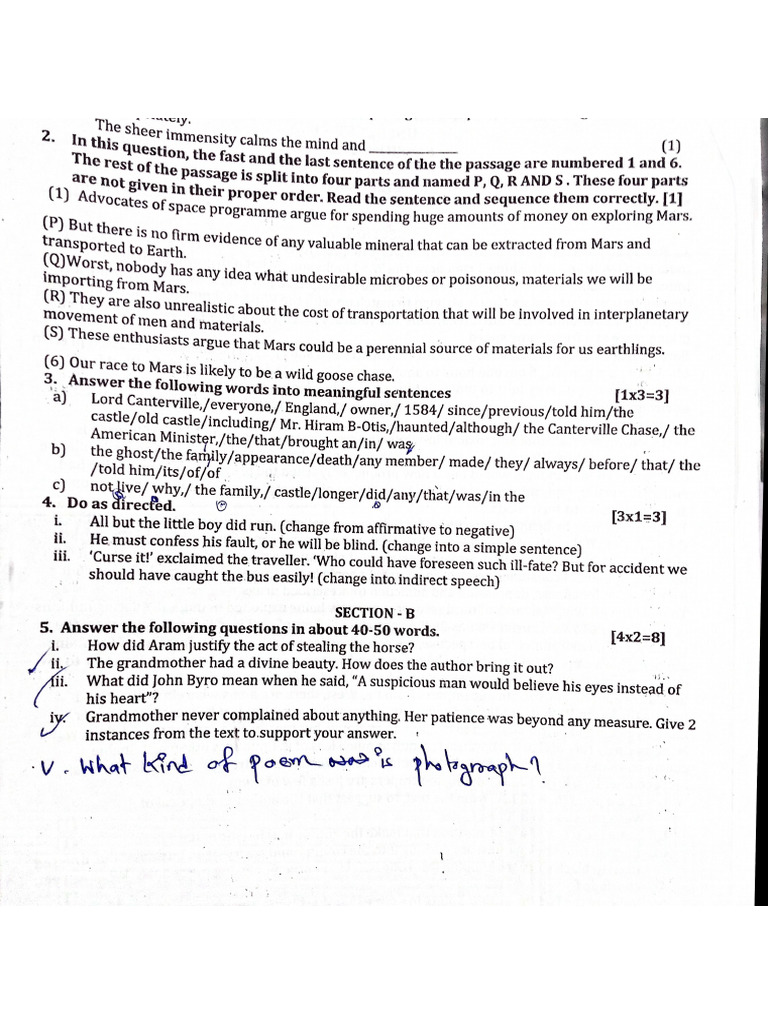 The sheer immensity calms the mind and ____________ (1)
2. In this question, the fast and the last sentence of the the passage are numbered 1 and 6.
The rest of the passage is split into four parts and named P, Q, R AND S . These four parts
are not given in their proper order. Read the sentence and sequence them correctly. [1]
(1) Advocates of space programme argue for spending huge amounts of money on exploring Mars.
(P) But there is no firm evidence of any valuable mineral that can be extracted from Mars and
transported to Earth.
(Q)Worst, nobody has any idea what undesirable microbes or poisonous, materials we will be
importing from Mars.
(R) They are also unrealistic about the cost of transportation that will be involved in interplanetary
movement of men and materials.
(S) These enthusiasts argue that Mars could be a perennial source of materials for us earthlings.
(6) Our race to Mars is likely to be a wild goose chase.
3. Answer the following words into meaningful sentences [1x3=3]
a) Lord Canterville,/everyone,/ England,/ owner,/ 1584/ since/previous/told him/the
castle/old castle/including/ Mr. Hiram B-Otis,/haunted/although/ the Canterville Chase,/ the
American Minister,/the/that/brought an/in/ was
b) the ghost/the family/appearance/death/any member/ made/ they/ always/ before/ that/ the
/told him/its/of/of
c) not live/ why,/ the family,/ castle/longer/did/any/that/was/in the
4. Do as directed. [3x1=3]
i. All but the little boy did run. (change from affirmative to negative)
ii. He must confess his fault, or he will be blind. (change into a simple sentence)
iii. ‘Curse it!’ exclaimed the traveller. ‘Who could have foreseen such ill-fate? But for accident we
should have caught the bus easily! (change into indirect speech)
SECTION - B
5. Answer the following questions in about 40-50 words. [4x2=8]
i. How did Aram justify the act of stealing the horse?
ii. The grandmother had a divine beauty. How does the author bring it out?
iii. What did John Byro mean when he said, “A suspicious man would believe his eyes instead of
his heart”?
iv. Grandmother never complained about anything. Her patience was beyond any measure. Give 2
instances from the text to support your answer.
v. What kind of poem is photograph?